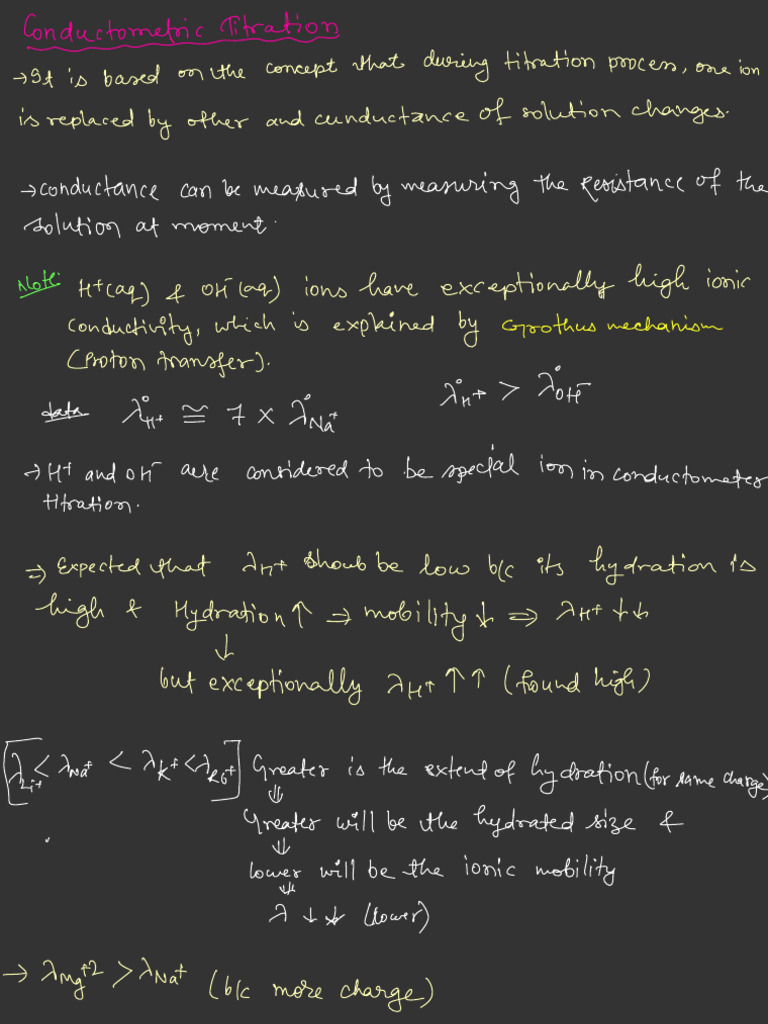 Conductometric Titration
→ It is based on the concept that during titration process, one ion
is replaced by other and cunductance of solution changes.
→ conductance can be measured by measuring the resistance of the
solution at moment.
Note: H⁺(aq) & OH⁻(aq) ions have exceptionally high ionic
conductivity, which is explained by Grothus mechanism
(Proton transfer).
data λ°H⁺ ≅ 7 × λ°Na⁺ λ°H⁺ > λ°OH⁻
→ H⁺ and OH⁻ are considered to be special ion in conductometer
titration.
⇒ Expected that λH⁺ shoub be low b/c its hydration is
high & Hydration ↑ ⇒ mobility ↓ ⇒ λH⁺ ↓↓
↓
but exceptionally λH⁺ ↑↑ (found high)
[λLi⁺ < λNa⁺ < λK⁺ < λRb⁺] Greater is the extend of hydration (for same charge)
⇓
Greater will be the hydrated size &
⇓
lower will be the ionic mobility
⇓
λ ↓↓ (lower)
→ λMg⁺² > λNa⁺ (b/c more charge)